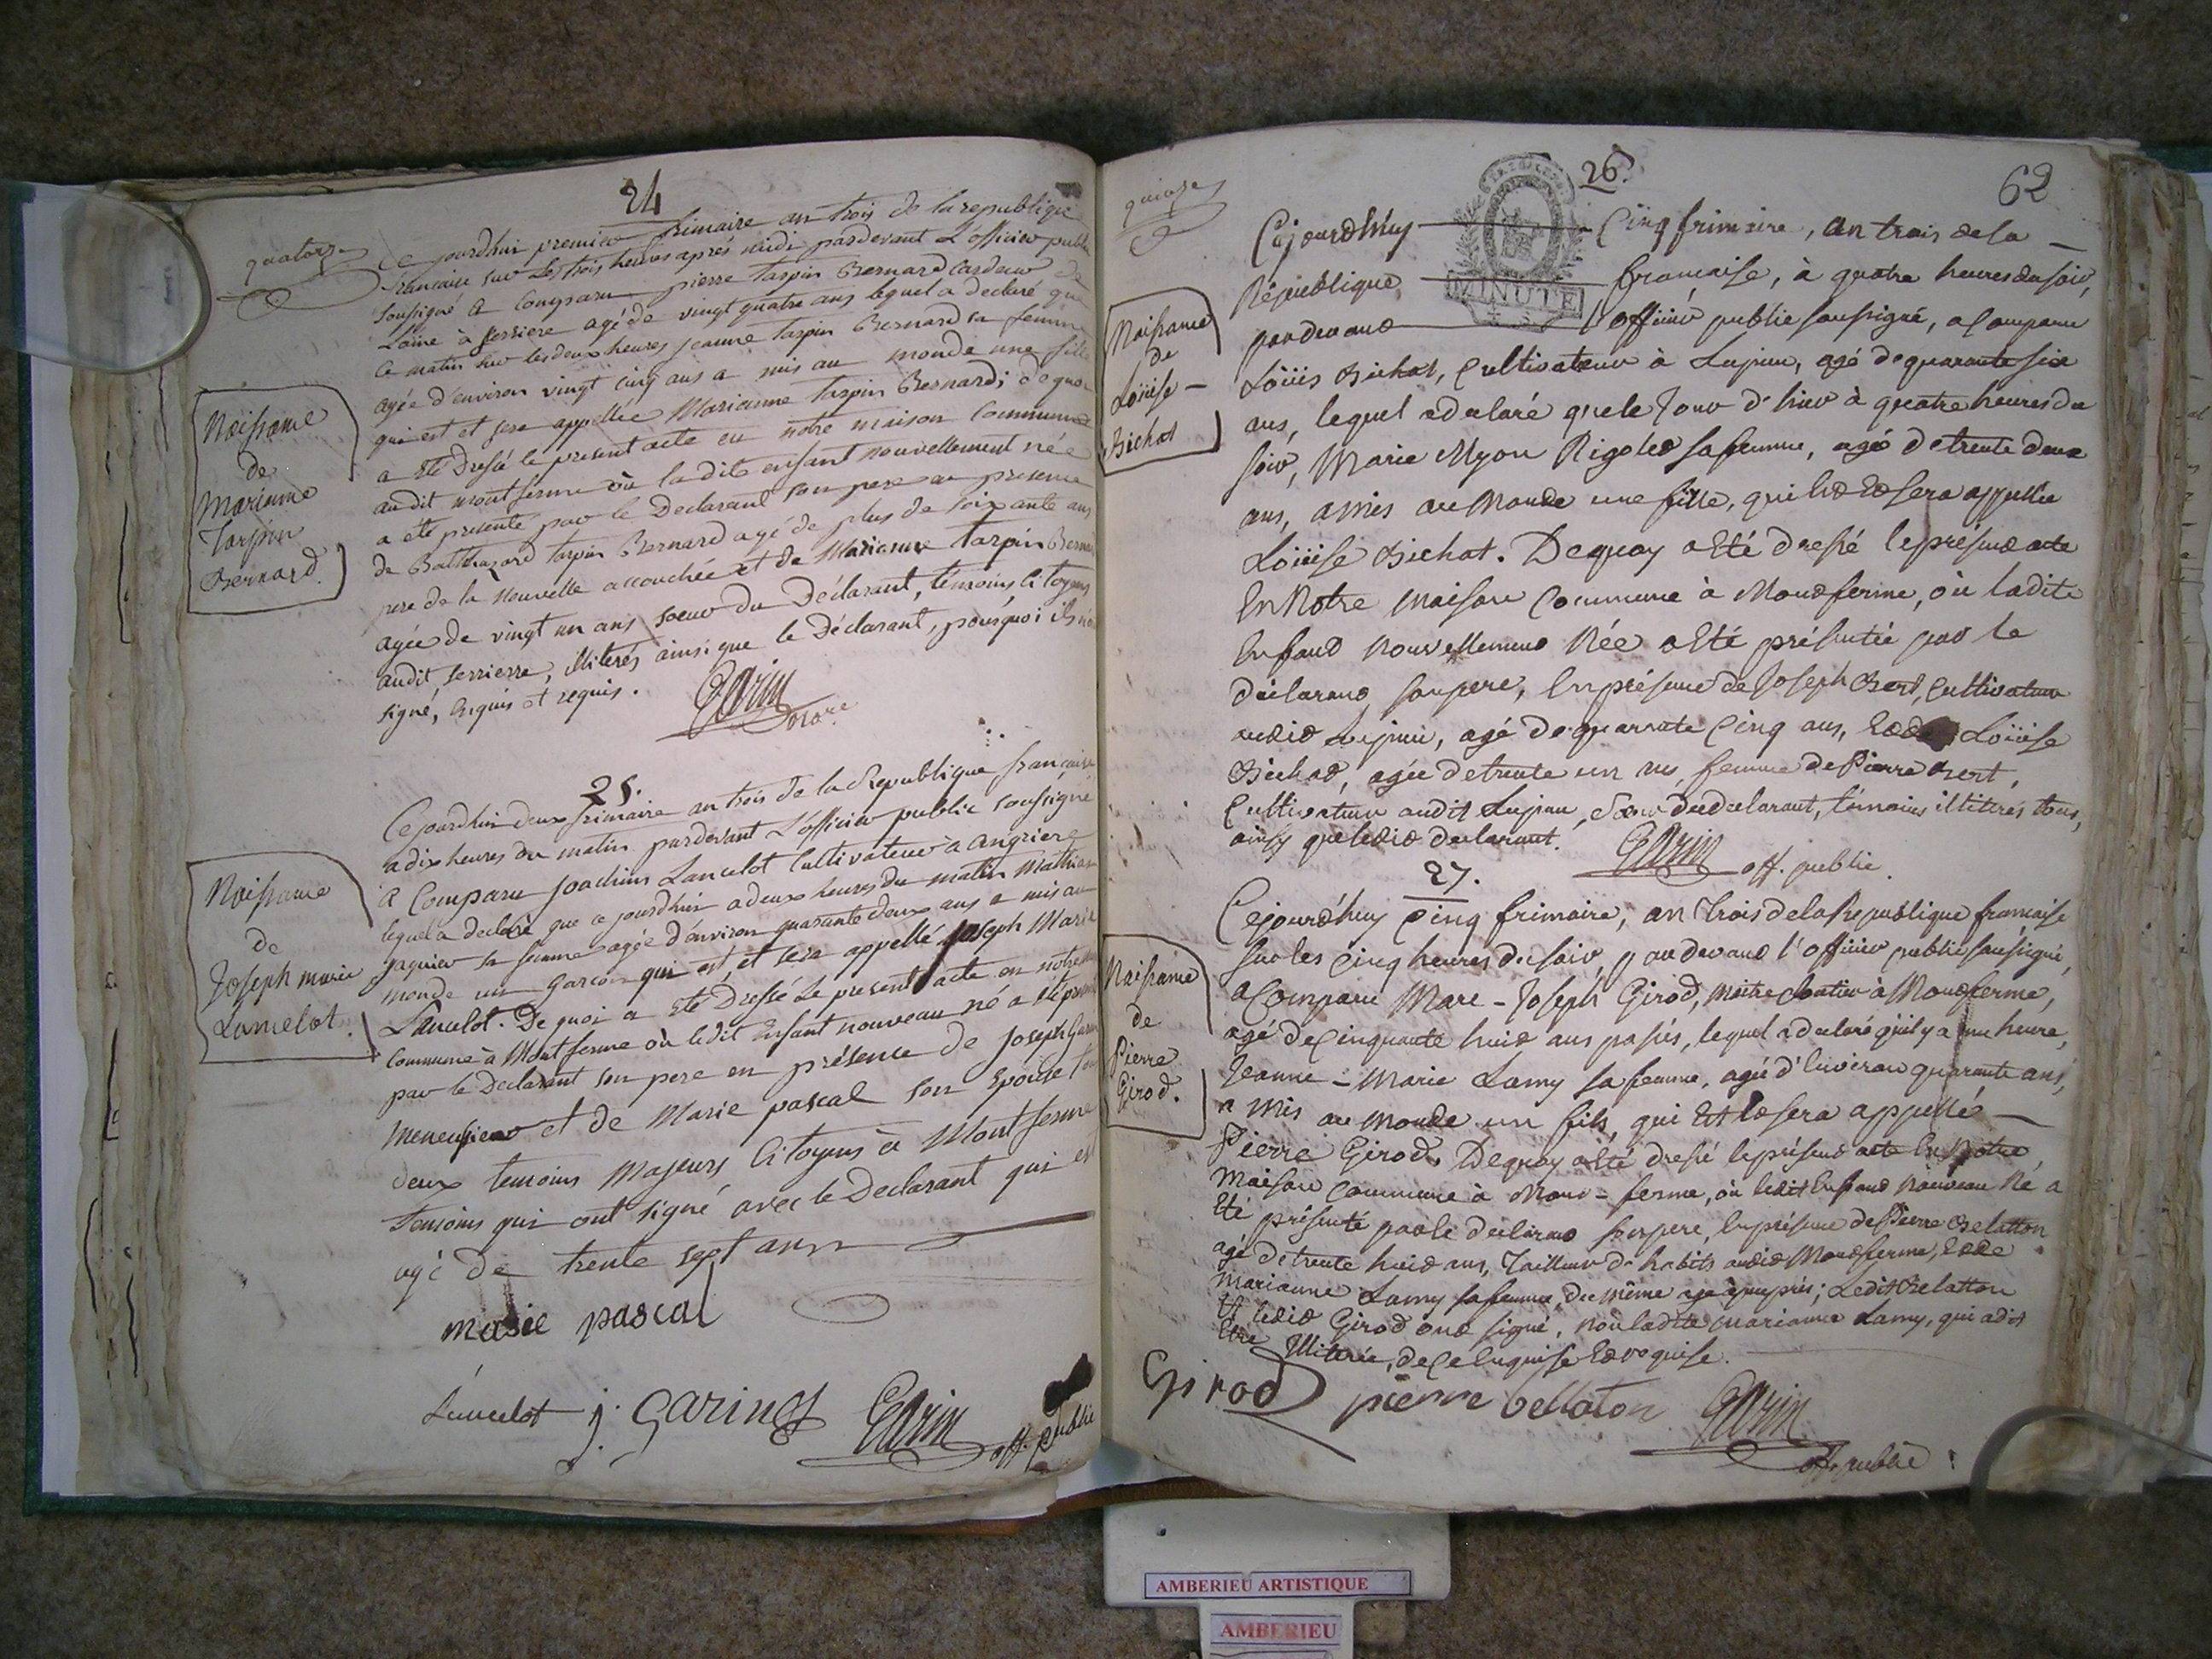 24
quatorze
Ce jourdhui premier frimaire an trois de la republique
francaise sur Les trois heures après midi pardevant L'officier public
soussigné a Comparu pierre tarpin Bernard Cardeur de
Laine à serriere agé de vingt quatre ans lequel a declaré que
Ce matin sur les deux heures jeanne tarpin Bernard sa femme
agée d'environ vingt cinq ans a mis au monde une fille
qui est et sera appellée Marianne tarpin Bernard; de quoi
a été Dressé le present acte en notre maison Commune
audit montferme où la dite enfant nouvellement née
a été presenté par le Declarant son pere en presence
de Balthazard tarpin Bernard agé de plus de soixante ans
pere de la nouvelle accouchée et de Marianne tarpin Bernard
agée de vingt un ans soeur du Déclarant, témoins, Citoyens
audit serrierre, illiterés ainsi que le Déclarant, pourquoi ils n'ont
signé, Enquis et requis.
Garin
Naissance
de
Marianne
Tarpin
Bernard.
25.
Cejourdhui deux frimaire an trois de la Republique francaise
a dix heures du matin pardevant L'officier public soussigné
a Comparu joachim Lancelot Cultivateur à angriere
lequel a declaré que ce jourdhui a deux heures du matin
jaquier sa femme agée d'environ quarante deux ans a mis au
monde un garcon qui est, et sera appellé joseph Marie
Lancelot. De quoi a été Dressé Le present acte en notre
Commune à Mont ferme où ledit Enfant nouveau né a été presenté
par le Declarant son pere en présence de joseph Garin
Meneusier et de Marie pascal son Epouse tous
deux temoins Majeurs Citoyens à Mont ferme
temoins qui ont signé avec le Declarant qui est
agé de trente sept ans
Naissance
de
Joseph marie
Lancelot.
marie pascal
Lancelot j. Garin Garin off. public
26.
62
quinze
MINUTE
Cejourdhuy Cinq frimaire, an trois de la
République francaise, à quatre heures du soir,
pardevant l'officier public soussigné, a Comparu
Loüis Bichat, Cultivateur à Lupieu, agé de quarante six
ans, lequel a déclaré que le Jour d'hier à quatre heures du
soir, Marie Myon Rigolet sa femme, agée de trente deux
ans, a mis au Monde une fille, qui est et sera appellée
Loüise Bichat. Dequoy a Eté dressé le présent acte
En Notre maison Commune à Montferme, où ladite
Enfant nouvellement Née a Eté présentée par le
déclarant son pere, En présence de Joseph Bert, Cultivateur
audit Lupieu, agé de quarante Cinq ans, Et de Loüise
Bichat, agée de trente un ans, femme de Pierre Bert,
Cultivateur audit Lupieu, Soeur du declarant, témoins illitérés tous,
ainsy que ledit declarant. Garin off. public.
Naissance
de
Loüise
Bichat
27.
Cejourd'huy Cinq frimaire, an trois de la Republique francaise
sur les Cinq heures du soir, pardevant l'officier public soussigné,
a Comparu Marc-Joseph Girod, maitre à Montferme,
agé de Cinquante huit ans passés, lequel a declaré qu'il y a une heure,
Jeanne-Marie Lamy sa femme, agée d'Environ quarante ans,
a mis au monde un fils, qui Est Et sera appellé
Pierre Girod. Dequoy a Eté dressé le présent acte En Notre
Maison Commune à Mont-ferme, où ledit Enfant Nouveau Né a
Eté présenté par le déclarant son pere, En présence de Pierre Belatton
agé de trente huit ans, Tailleur d'habits audit Montferme, Et de
Marianne Lamy sa femme, du même age à peu près; Ledit Belatton
Et ledit Girod ont signé, non ladite marianne Lamy, qui a dit
Etre Illiterée, de Ce Enquise Et requise.
Naissance
de
Pierre
Girod.
Girod pierre bellaton Garin
off. public
AMBERIEU ARTISTIQUE
AMBERIEU